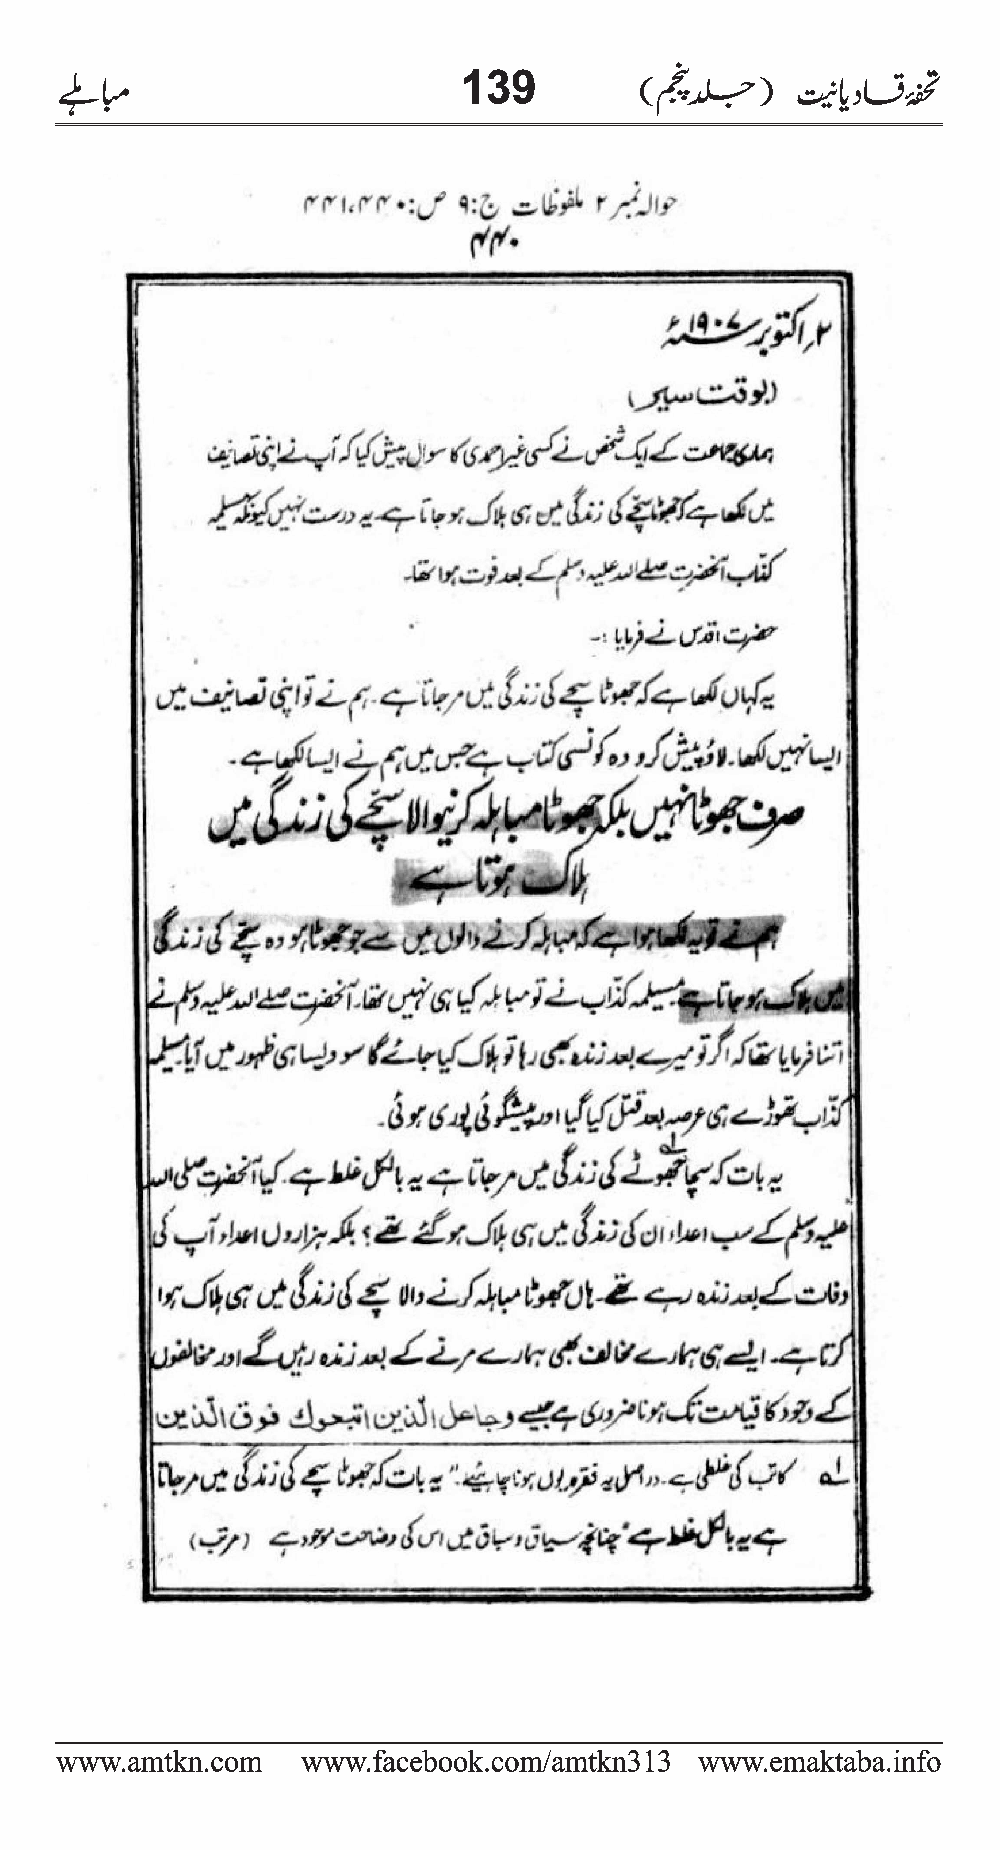 تحفۂ قادیانیت (جلد پنجم) 139 مباہلے
حوالہ نمبر ۲ ملفوظات ج:۹ ص:۴۴۱،۴۴۰
۴۴۰
۲؍اکتوبر ۱۹۰۷ء
(بوقت سیر)
ہماری جماعت کے ایک شخص نے کسی غیر احمدی کا سوال پیش کیا کہ آپ نے اپنی تصانیف
میں لکھا ہے کہ جھوٹا سچّے کی زندگی میں ہی ہلاک ہو جاتا ہے۔ یہ درست نہیں کیونکہ مسیلمہ
کذّاب آنحضرت صلے اللہ علیہ وسلم کے بعد فوت ہوا تھا۔
حضرت اقدس نے فرمایا :۔
یہ کہاں لکھا ہے کہ جھوٹا سچے کی زندگی میں مر جاتا ہے۔ ہم نے تو اپنی تصانیف میں
ایسا نہیں لکھا۔ لاؤ پیش کرو وہ کونسی کتاب ہے جس میں ہم نے ایسا لکھا ہے۔
صرف جھوٹا نہیں بلکہ جھوٹا مباہلہ کرنیوالا سچّے کی زندگی میں
ہلاک ہوتا ہے
ہم نے تو یہ لکھا ہوا ہے کہ مباہلہ کرنے والوں میں سے جو جھوٹا ہو وہ سچّے کی زندگی
میں ہلاک ہو جاتا ہے مسیلمہ کذّاب نے تو مباہلہ کیا ہی نہیں تھا۔ آنحضرت صلے اللہ علیہ وسلم نے
اتنا فرمایا تھا کہ اگر تو میرے بعد زندہ بھی رہا تو ہلاک کیا جائے گا سو ویسا ہی ظہور میں آیا۔ مسیلمہ
کذّاب تھوڑے ہی عرصہ بعد قتل کیا گیا اور پیشگوئی پوری ہوئی۔
یہ بات کہ سچا جھوٹے کی زندگی میں مر جاتا ہے یہ بالکل غلط ہے۔ کیا آنحضرت صلی اللہ
علیہ وسلم کے سب اعداء ان کی زندگی میں ہی ہلاک ہو گئے تھے؟ بلکہ ہزاروں اعداء آپ کی
وفات کے بعد زندہ رہے تھے۔ ہاں جھوٹا مباہلہ کرنے والا سچے کی زندگی میں ہی ہلاک ہوا
کرتا ہے۔ ایسے ہی ہمارے مخالف بھی ہمارے مرنے کے بعد زندہ رہیں گے اور مخالفوں
کے وجود کا قیامت تک ہونا ضروری ہے جیسے وجاعل الّذین اتبعوك فوق الّذین
لہ کاتب کی غلطی ہے۔ دراصل یہ فقرہ یوں ہونا چاہیئے۔ "یہ بات کہ جھوٹا سچے کی زندگی میں مر جاتا
ہے یہ بالکل غلط ہے" چنانچہ سیاق و سباق میں اس کی وضاحت موجود ہے (مرتب)
www.amtkn.com www.facebook.com/amtkn313 www.emaktaba.info